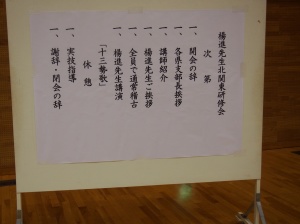 楊進先生北関東研修会
次第
一、開会の辞
一、各県支部長挨拶
一、講師紹介
一、楊進先生ご挨拶
一、全員で通常稽古
一、楊進先生講演
「十三勢歌」
休憩
一、実技指導
一、謝辞・閉会の辞